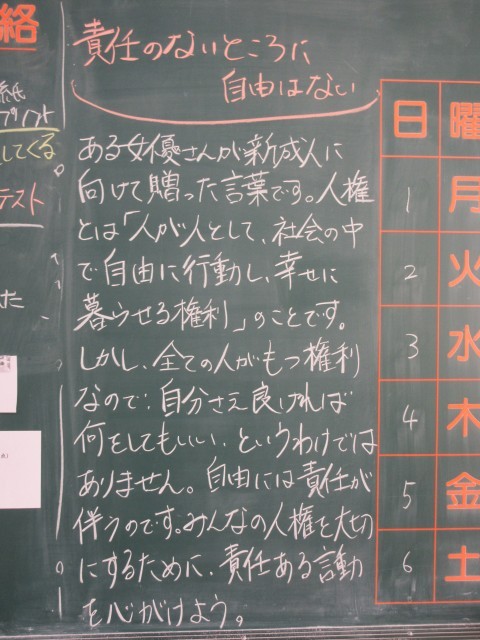 絡
紙
プリント
してくる
テスト
た
責任のないところに
自由はない
ある女優さんが新成人に
向けて贈った言葉です。人権
とは「人が人として、社会の中
で自由に行動し、幸せに
暮らせる権利」のことです。
しかし、全ての人がもつ権利
なので、自分さえ良ければ
何をしてもいい、というわけでは
ありません。自由には責任が
伴うのです。みんなの人権を大切
にするために、責任ある言動
を心がけよう。
日 曜
1 月
2 火
3 水
4 木
5 金
6 土